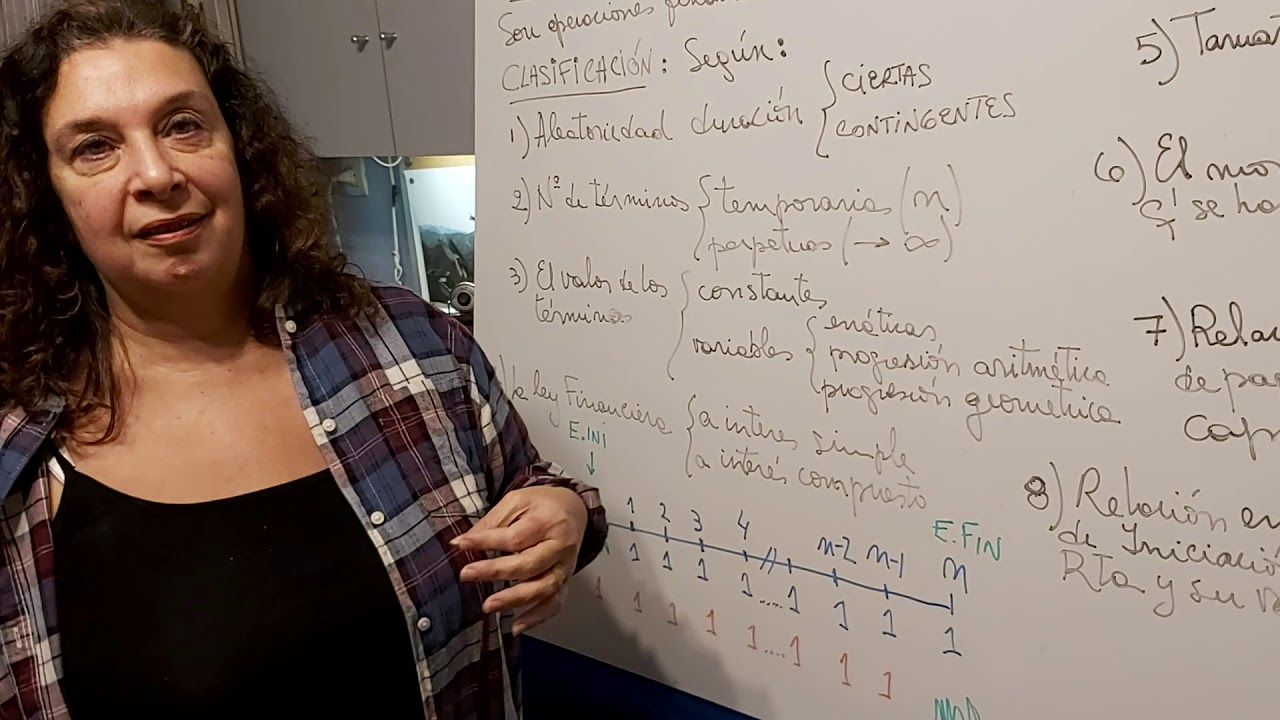 Son operaciones
CLASIFICACIÓN: Según:
1) Aleatoriedad duración { CIERTAS
CONTINGENTES
2) Nº de términos { temporarias (n)
perpetuas (→ ∞)
3) El valor de los { constantes
términos
variables { erráticas
progresión aritmética
progresión geométrica
ley Financiera { a interes simple
a interés compuesto
E.INI
↓
1 2 3 4 n-2 n-1 n
E.FIN
1 1 1 1 ..... 1 1 1 1
1 1 1 1 1 .... 1 1 1
5) Tamañ
6) El mo
se ha
7) Rela
de pa
Cap
8) Relación en
de Iniciació
RTa y su